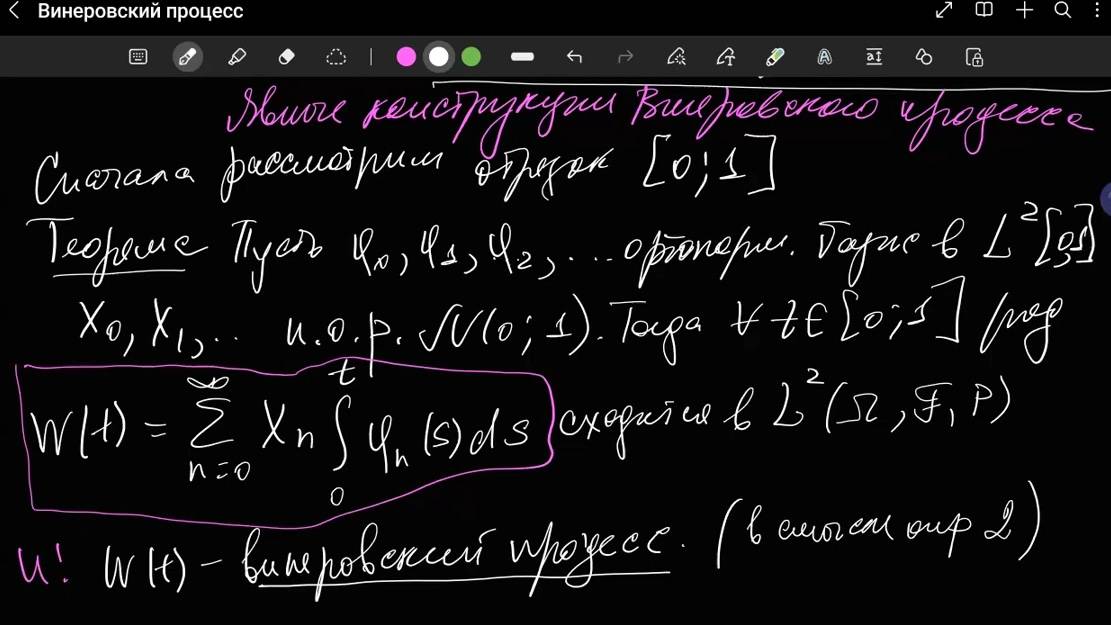 Винеровский процесс
Явные конструкции Винеровского процесса
Сначала рассмотрим отрезок [0;1]
Теорема Пусть φ₀, φ₁, φ₂, ... ортонорм. базис в L²[0,1]
X₀, X₁, ... н.о.р. N(0;1). Тогда ∀ t ∈ [0;1] ряд
W(t) = ∑_{n=0}^{∞} Xₙ ∫_0^t φₙ(s)ds сходится в L²(Ω, F, P)
и! W(t) – винеровский процесс. (в смысле опр 2)